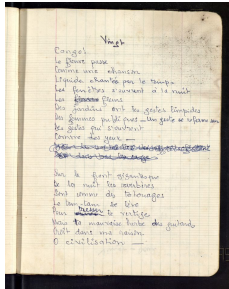 Vingt
Cangot
Le fleuve passe
Comme une chanson
Liquide chantée par le temps
Les fenêtres s'ouvrent à la nuit
Les fleurs
Des jardins ont les gestes limpides
des femmes pubères — Un geste se referme sur
les gestes qui s'ouvrent
Comme des yeux —
Sur le front gigantesque
De la nuit les
Sont comme des tatouages
Le tam-tam se lève
Pour le vertige
Mais la mauvaise herbe des
Croît dans une
O civilisation —